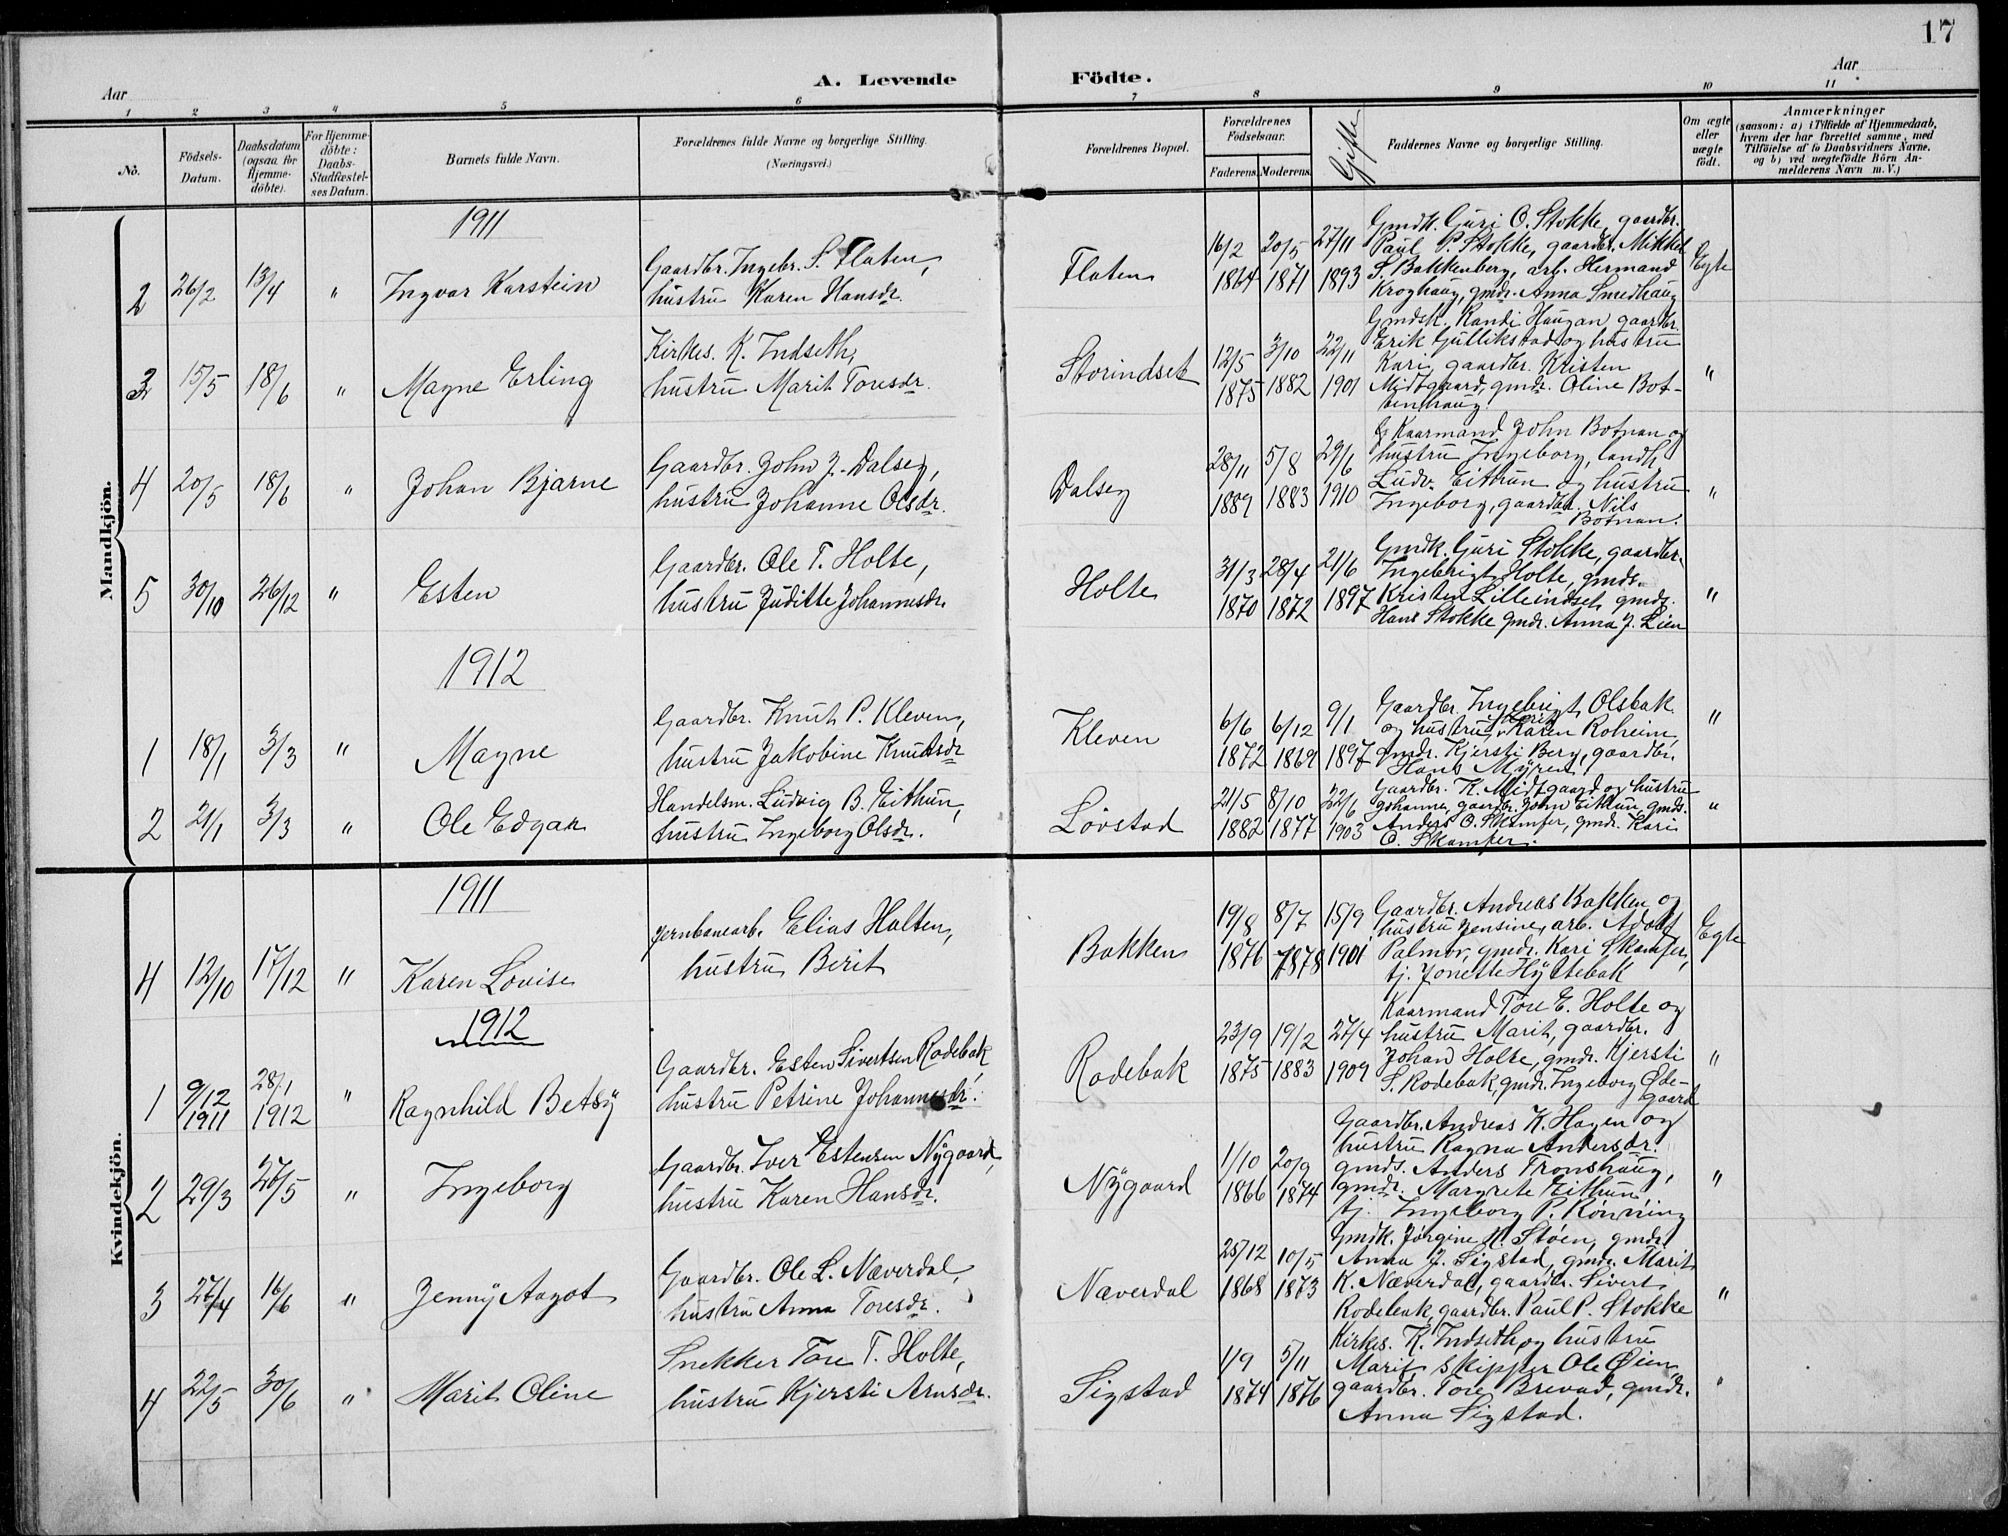 17
A. Levende Födte.
Aar
Aar
1 2 3 4 5 6 7 8 9 10 11
No.
Födsels-
Datum.
Daabsdatum
(ogsaa for
Hjemme-
döbte).
For Hjemme-
döbte:
Daabs-
Stadfæstel-
ses Datum.
Barnets fulde Navn.
Forældrenes fulde Navne og borgerlige Stilling.
(Næringsvei.)
Forældrenes Bopæl.
Forældrenes
Födselsaar.
Faderens. Moderens.
Gifte
Faddernes Navne og borgerlige Stilling.
Om ægte
eller
uægte
födt.
Anmærkninger
(saasom: a) i Tilfælde af Hjemmedaab,
hvem der har forrettet samme, med
Tilföielse af to Daabsvidners Navne,
og b) ved uægtefödte Börn An-
melderens Navn m. V.)
Mandkjön.
1911
2 26/2 13/4 " Ingvar Karstein
Gaardbr. Ingebr. S. Flaten,
hustru Karen Hansdr.
Flaten
16/2 20/5 27/11
1864 1871 1893
Gmdk. Guri O. Stokke, gaardbr.
Paul P. Stokke, gaardbr. Mikkel
S. Bakkenberg, arb. Hermand
Kroghaug, gmdr. Anna Smedhaug
Egte
3 15/5 18/6 " Magne Erling
Kirkes. K. Indseth,
hustru Marit Toresdr.
Storindset
12/5 3/10 22/11
1875 1882 1901
Gmdsk. Randi Haugan, gaardbr.
Erik Gullikstad og hustru
Kari, gaardbr. Kristen
Midtgaard, gmdr. Oline Bot-
tenhaug.
"
4 20/5 18/6 " Johan Bjarne
Gaardbr. John J. Dalseg,
hustru Johanne Olsdr.
Dalseg
28/11 5/8 29/6
1889 1883 1910
Kaarmand John Botnan og
hustru Ingeborg, landh.
Ludv. Eithun og hustru
Ingeborg, gaardbr. Nils
Botnan.
"
5 30/10 26/12 " Esten
Gaardbr. Ole T. Holte,
hustru Juditte Johannesdr.
Holte
31/3 28/4 21/6
1870 1872 1897
Gmdk. Guri Stokke, gaardbr.
Ingebrigt Holte, gmds.
Kristen Lilleindset, gmds.
Hans Stokke gmdr. Anna J. Lien
"
1912
1 18/1 3/3 " Magne
Gaardbr. Knut P. Kleven,
hustru Jakobine Knutsdr
Kleven
6/6 6/12 9/1
1872 1869 1897
Gaardbr. Ingebrigt Olsbak
og hustru Karen Roheim,
gmdr. Kjersti Berg, gaardbr.
Hans Myren
"
2 21/1 3/3 " Ole Edgar
Handelsm. Ludvig B. Eithun,
hustru Ingeborg Olsdr.
Lovstad
21/5 8/10 22/6
1882 1877 1903
Gaardbr. K. Midtgaard og hustru
Johanne, gaardbr. John Eithun, gmds.
Anders O. Skamfer, gmdr. Kari
O. Skamfer.
"
Kvindekjön.
1911
4 12/10 17/12 " Karen Lovise
Jernbanearb. Elias Halten,
hustru Berit
Bakken
19/8 8/7 15/9
1876 1878 1901
Gaardbr. Andreas Bakken og
hustru Jensine, arb. Adolf
Palmar, gmdr. Kari Skamfer,
tj. Jonette Hyttebak
Egte
1912
1 9/12 1911 28/1 1912 " Ragnhild Betsy
Gaardbr. Esten Sivertsen Rodebak,
hustru Petrine Johannesdr.
Rodebak
23/9 19/2 27/4
1875 1883 1909
Kaarmand Tore E. Holte og
hustru Marit, gaardbr.
Johan Holte, gmdr. Kjersti
S. Rodebak, gmdr. Ingeborg Øde-
gaard
"
2 29/3 26/5 " Ingeborg
Gaardbr. Iver Estensen Nygaard,
hustru Karen Hansdr.
Nygaard
1/10 20/9
1866 1874
Gaardbr. Andreas K. Hagen og
hustru Ragna Andersdr.
gmds. Anders Tronshaug,
gmdr. Margrete Eithun,
tj. Ingeborg P. Rønning
"
3 27/4 16/6 " Jenny Aagot
Gaardbr. Ole L. Næverdal,
hustru Anna Toresdr.
Næverdal
25/12 10/5
1868 1873
Gmdk. Jørgine N. Støen, gmdr.
Anna J. Sigstad, gmdr. Marit
K. Næverdal, gaardbr. Sivert
Rodebak, gaardbr. Paul P. Stokke
"
4 22/5 30/6 " Marit Oline
Snekker Tore T. Holte,
hustru Kjersti Arnsdr.
Sigstad
1/9 5/11
1874 1876
Kirkes. K. Indseth og hustru
Marit, skipper Ole Øien,
gaardbr. Tore Brevad, gmdr.
Anna Sigstad.
"